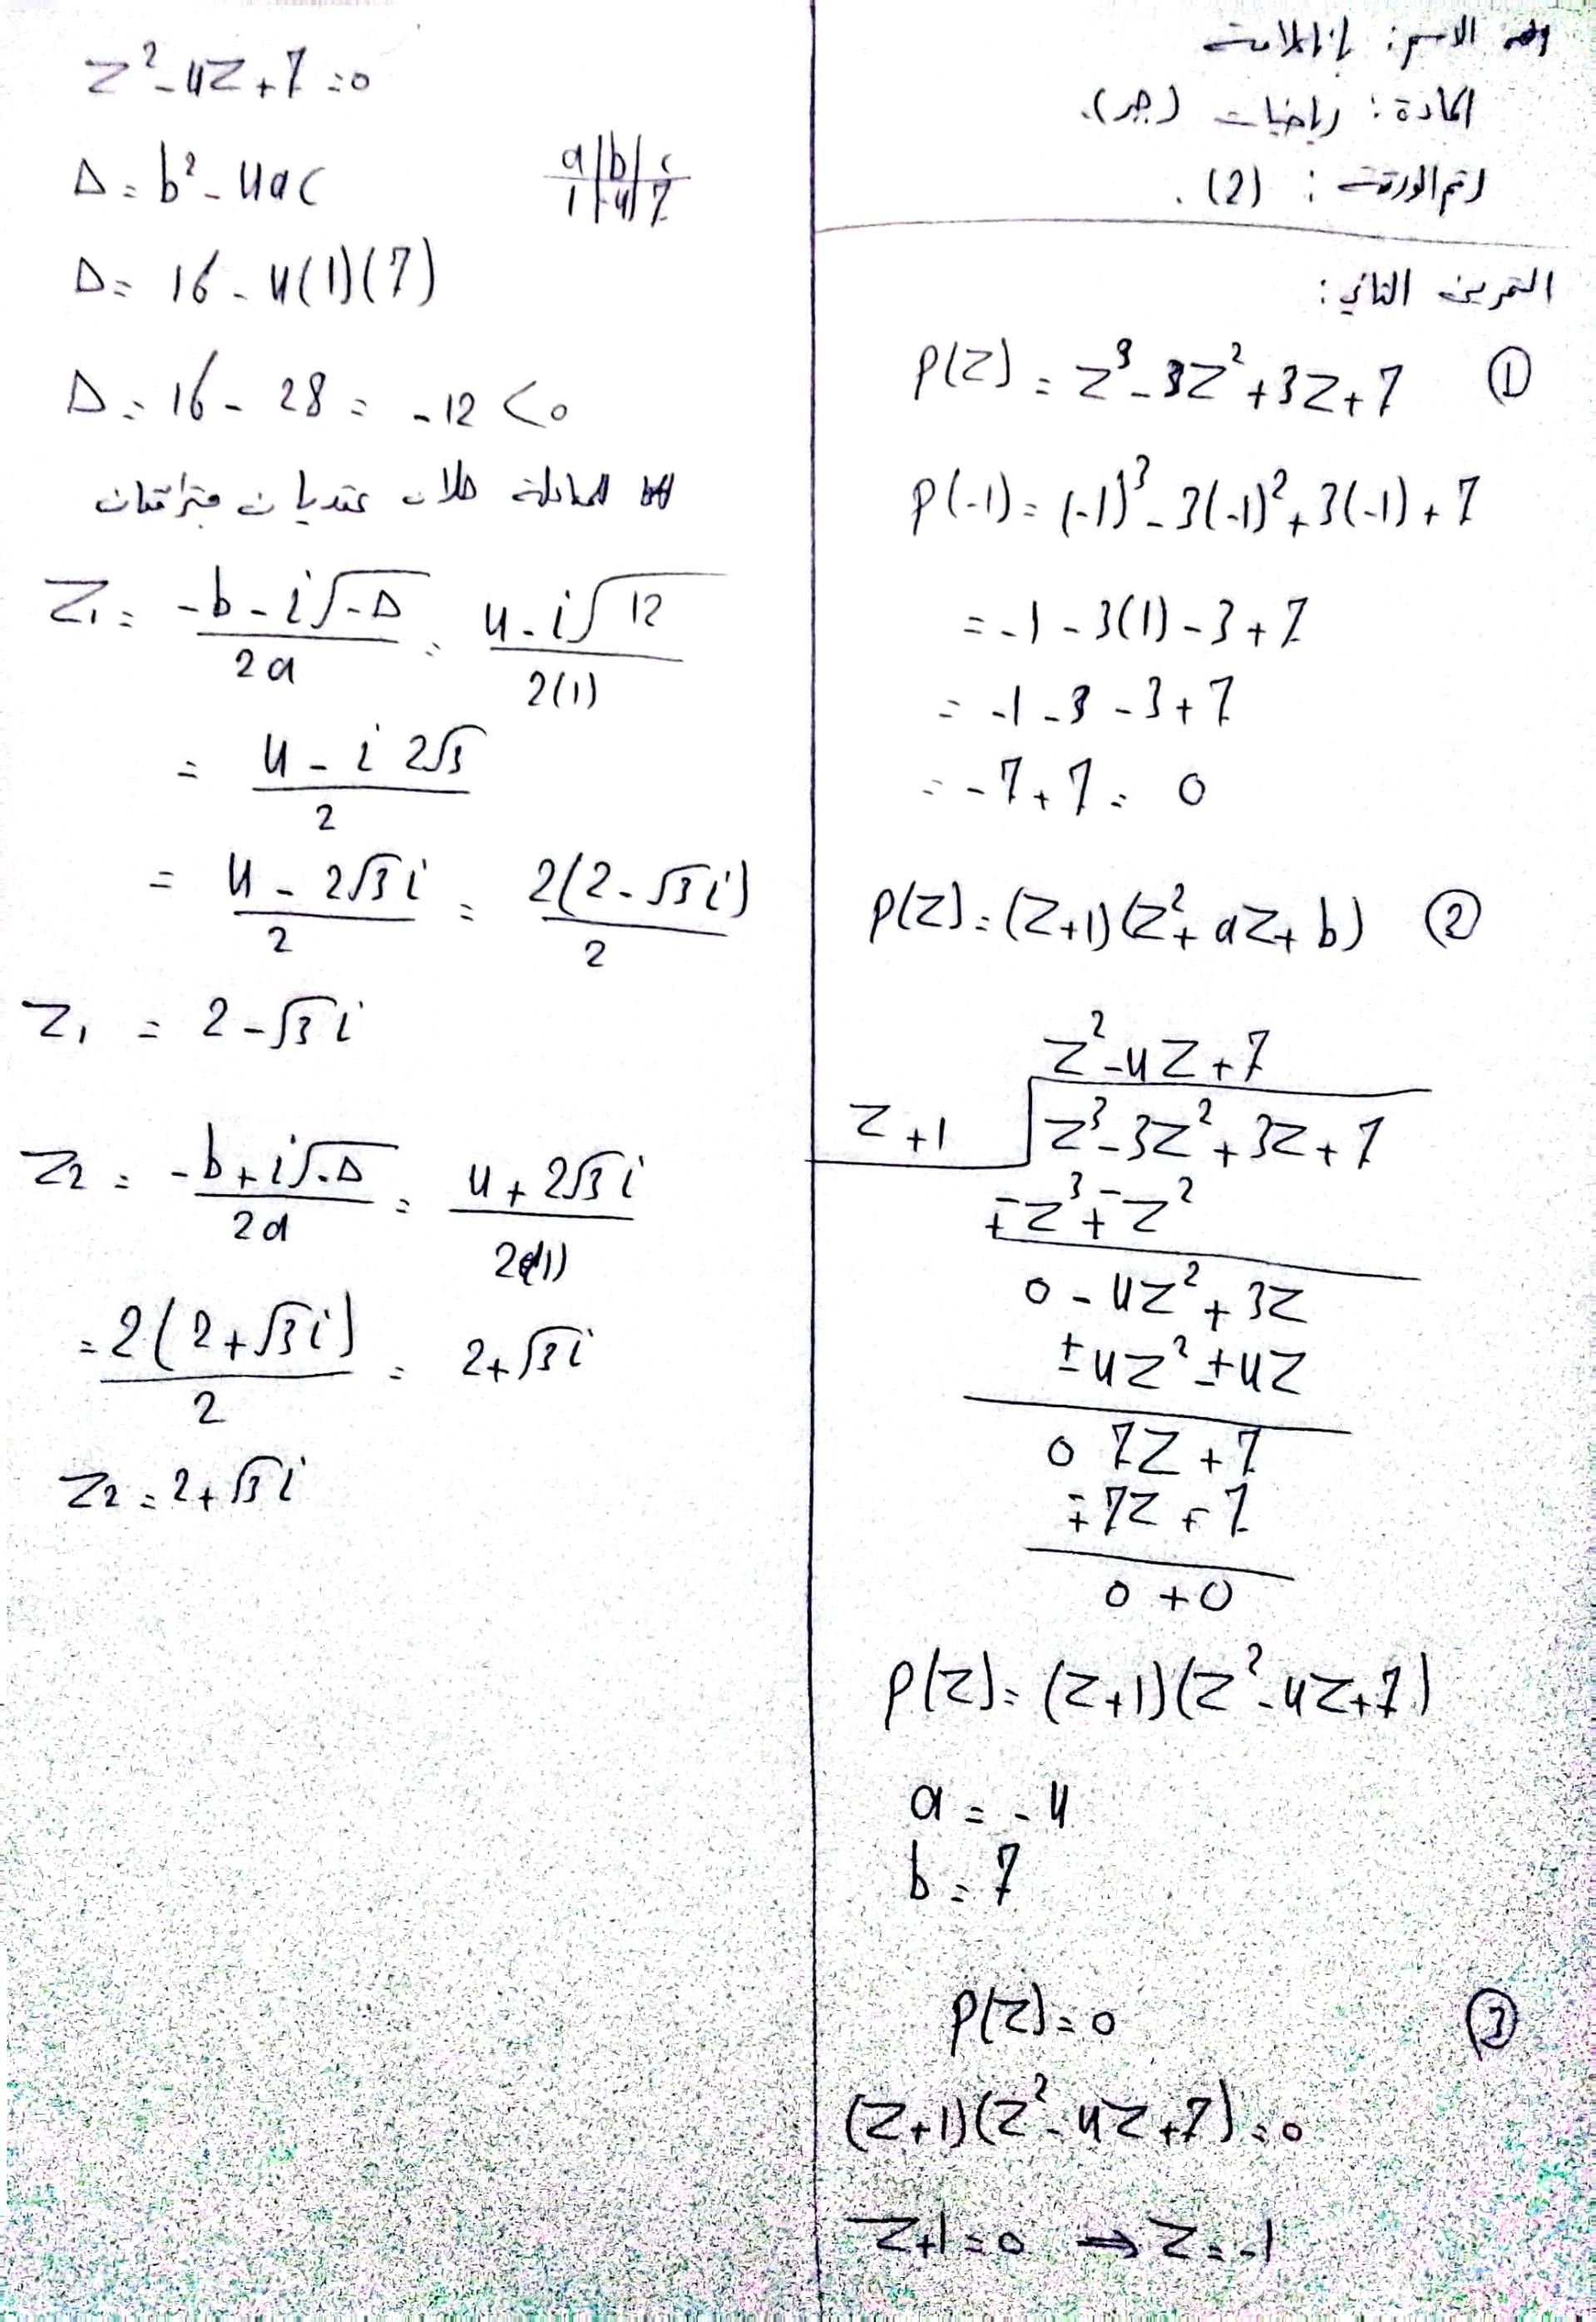 الاسم:
المادة: رياضيات (جبر).
رقم الورقة: (2).
التمرين الثاني:
① P(Z) = Z³ - 3Z² + 3Z + 7
P(-1) = (-1)³ - 3(-1)² + 3(-1) + 7
= -1 - 3(1) - 3 + 7
= -1 - 3 - 3 + 7
= -7 + 7 = 0
② P(Z) = (Z+1)(Z² + aZ + b)
Z² - 4Z + 7
Z + 1 Z³ - 3Z² + 3Z + 7
∓Z³ ∓ Z²
0 - 4Z² + 3Z
±4Z² ± 4Z
0 7Z + 7
∓7Z ∓ 7
0 + 0
P(Z) = (Z+1)(Z² - 4Z + 7)
a = -4
b = 7
③ P(Z) = 0
(Z+1)(Z² - 4Z + 7) = 0
Z+1 = 0 ⇒ Z = -1
Z² - 4Z + 7 = 0
Δ = b² - 4ac a | b | c
Δ = 16 - 4(1)(7) 1 | -4 | 7
Δ = 16 - 28 = -12 < 0
للمعادلة حلان عقديان مترافقان
Z₁ = (-b - i√-Δ)/2a = (4 - i√12)/2(1)
= (4 - i 2√3)/2
= (4 - 2√3 i)/2 = 2(2 - √3 i)/2
Z₁ = 2 - √3 i
Z₂ = (-b + i√-Δ)/2a = (4 + 2√3 i)/2(1)
= 2(2 + √3 i)/2 = 2 + √3 i
Z₂ = 2 + √3 i